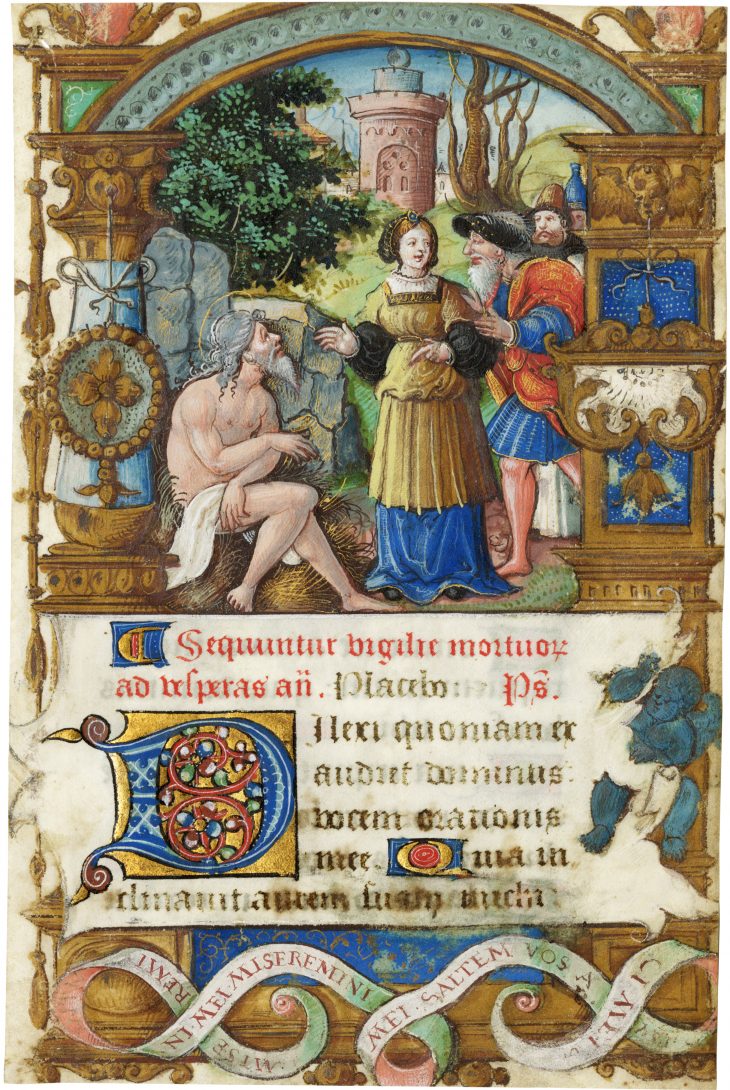 Sequuntur vigilie mortuoꝝ
ad vesperas an̄. Placebo Ps̄.
Dilexi quoniam ex
audiet dominus
vocem orationis
mee. Quia in
clinavit aurem suam michi
MISEREMINI MEI MISEREMINI MEI SALTEM VOS AMICI MEI